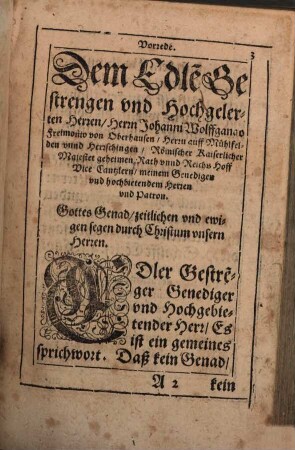 Vorrede.
3
Dem Edlē Ge
strengen vnd Hochgeler-
ten Herren/ Herrn Johann Wolffgango
Freimonn von Oberhausen / Herrn auff Mühlfel-
den vnnd Herschingen / Römischer Kaiserlicher
Majestet geheimen, Rath vnnd Reichs Hoff
Vice Cantzlern/ meinem Genedigen
vnd hochbietendem Herren
vnd Patron.
Gottes Genad/ zeitlichen vnd ewi-
gen segen durch Christum vnsern
Herren.
EDler Gestrē-
ger Genediger
vnd Hochgebie-
tender Herr/ Es
ist ein gemeines
sprichwort. Daß kein Genad/
A 2 kein